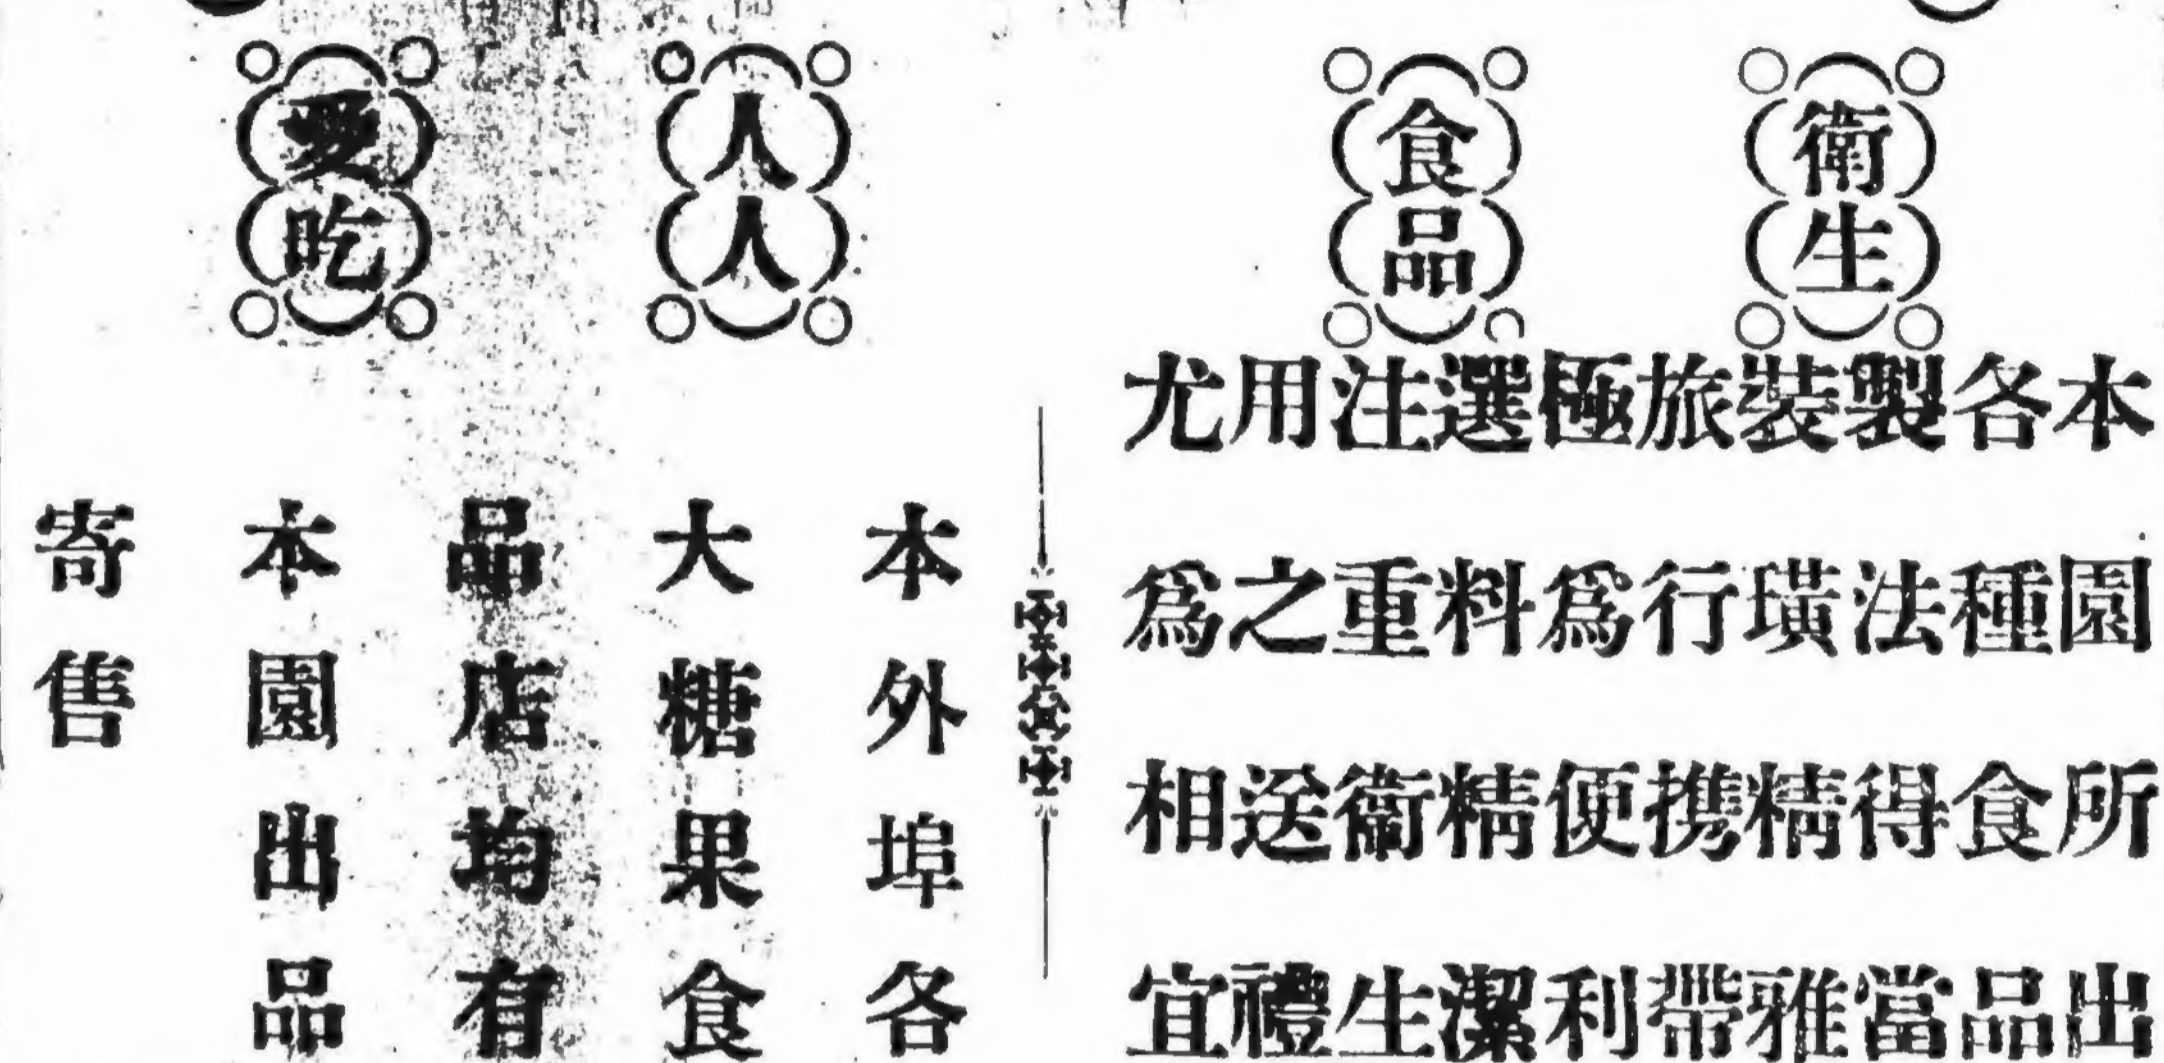 衛生
食品
人人
愛吃
本園所出
各種食品
製法得當
裝璜精雅
旅行携帶
極爲便利
選料精潔
注重衛生
用之送禮
尤爲相宜
本外埠各
大糖果食
品店均有
本園出品
寄售